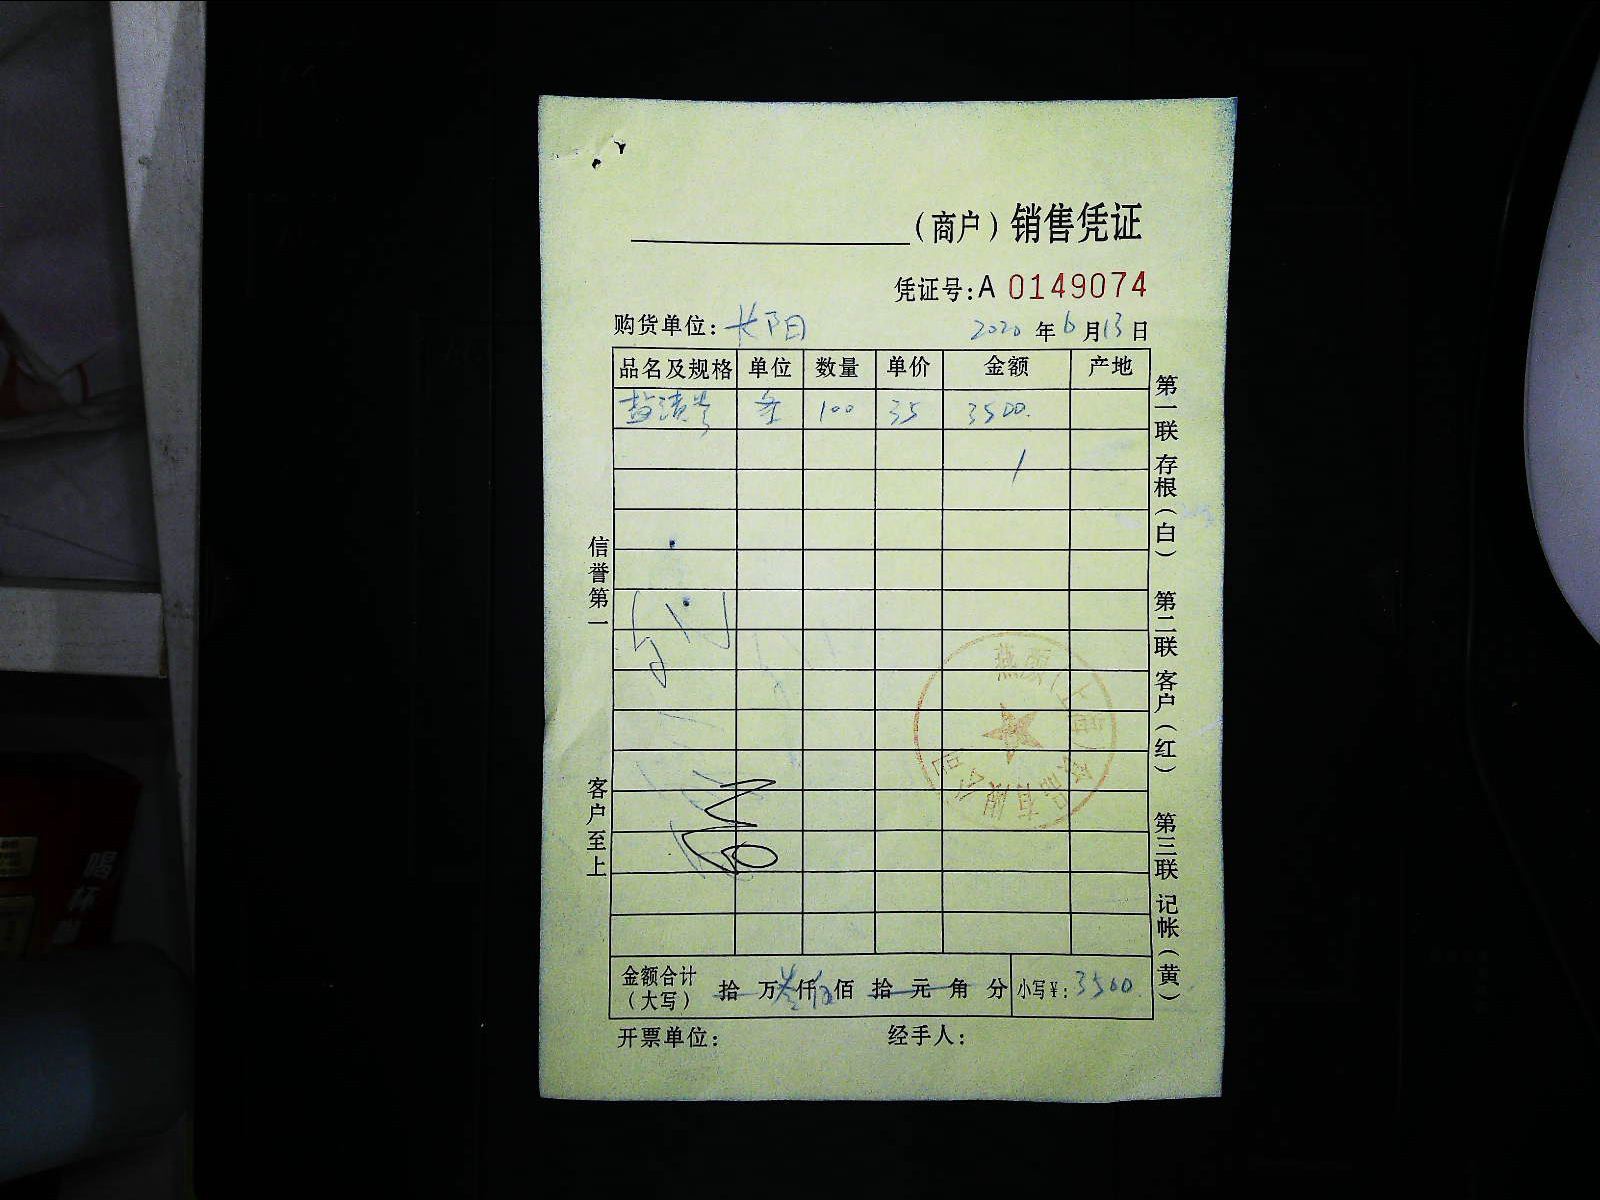 （商户）销售凭证
凭证号:A 0149074
购货单位: 长阳 2020 年 6 月 13 日
品名及规格 单位 数量 单价 金额 产地
盐渍 条 100 35 3500.
信誉第一
客户至上
第一联 存根（白） 第二联 客户（红） 第三联 记帐（黄）
有限公司
金额合计（大写） 拾 万 叁 仟 伍 佰 拾 元 角 分 小写¥: 3500.
开票单位: 经手人:
喝杯